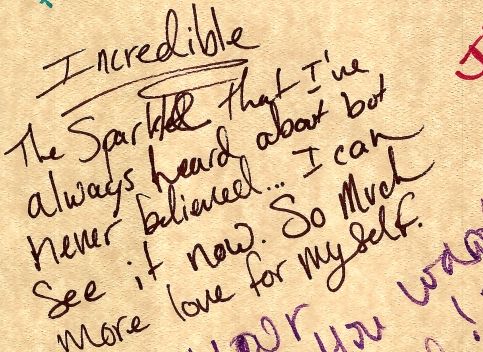 Incredible
The Sparkle that I've
always heard about but
never believed... I can
see it now. So Much
more love for myself.
your you